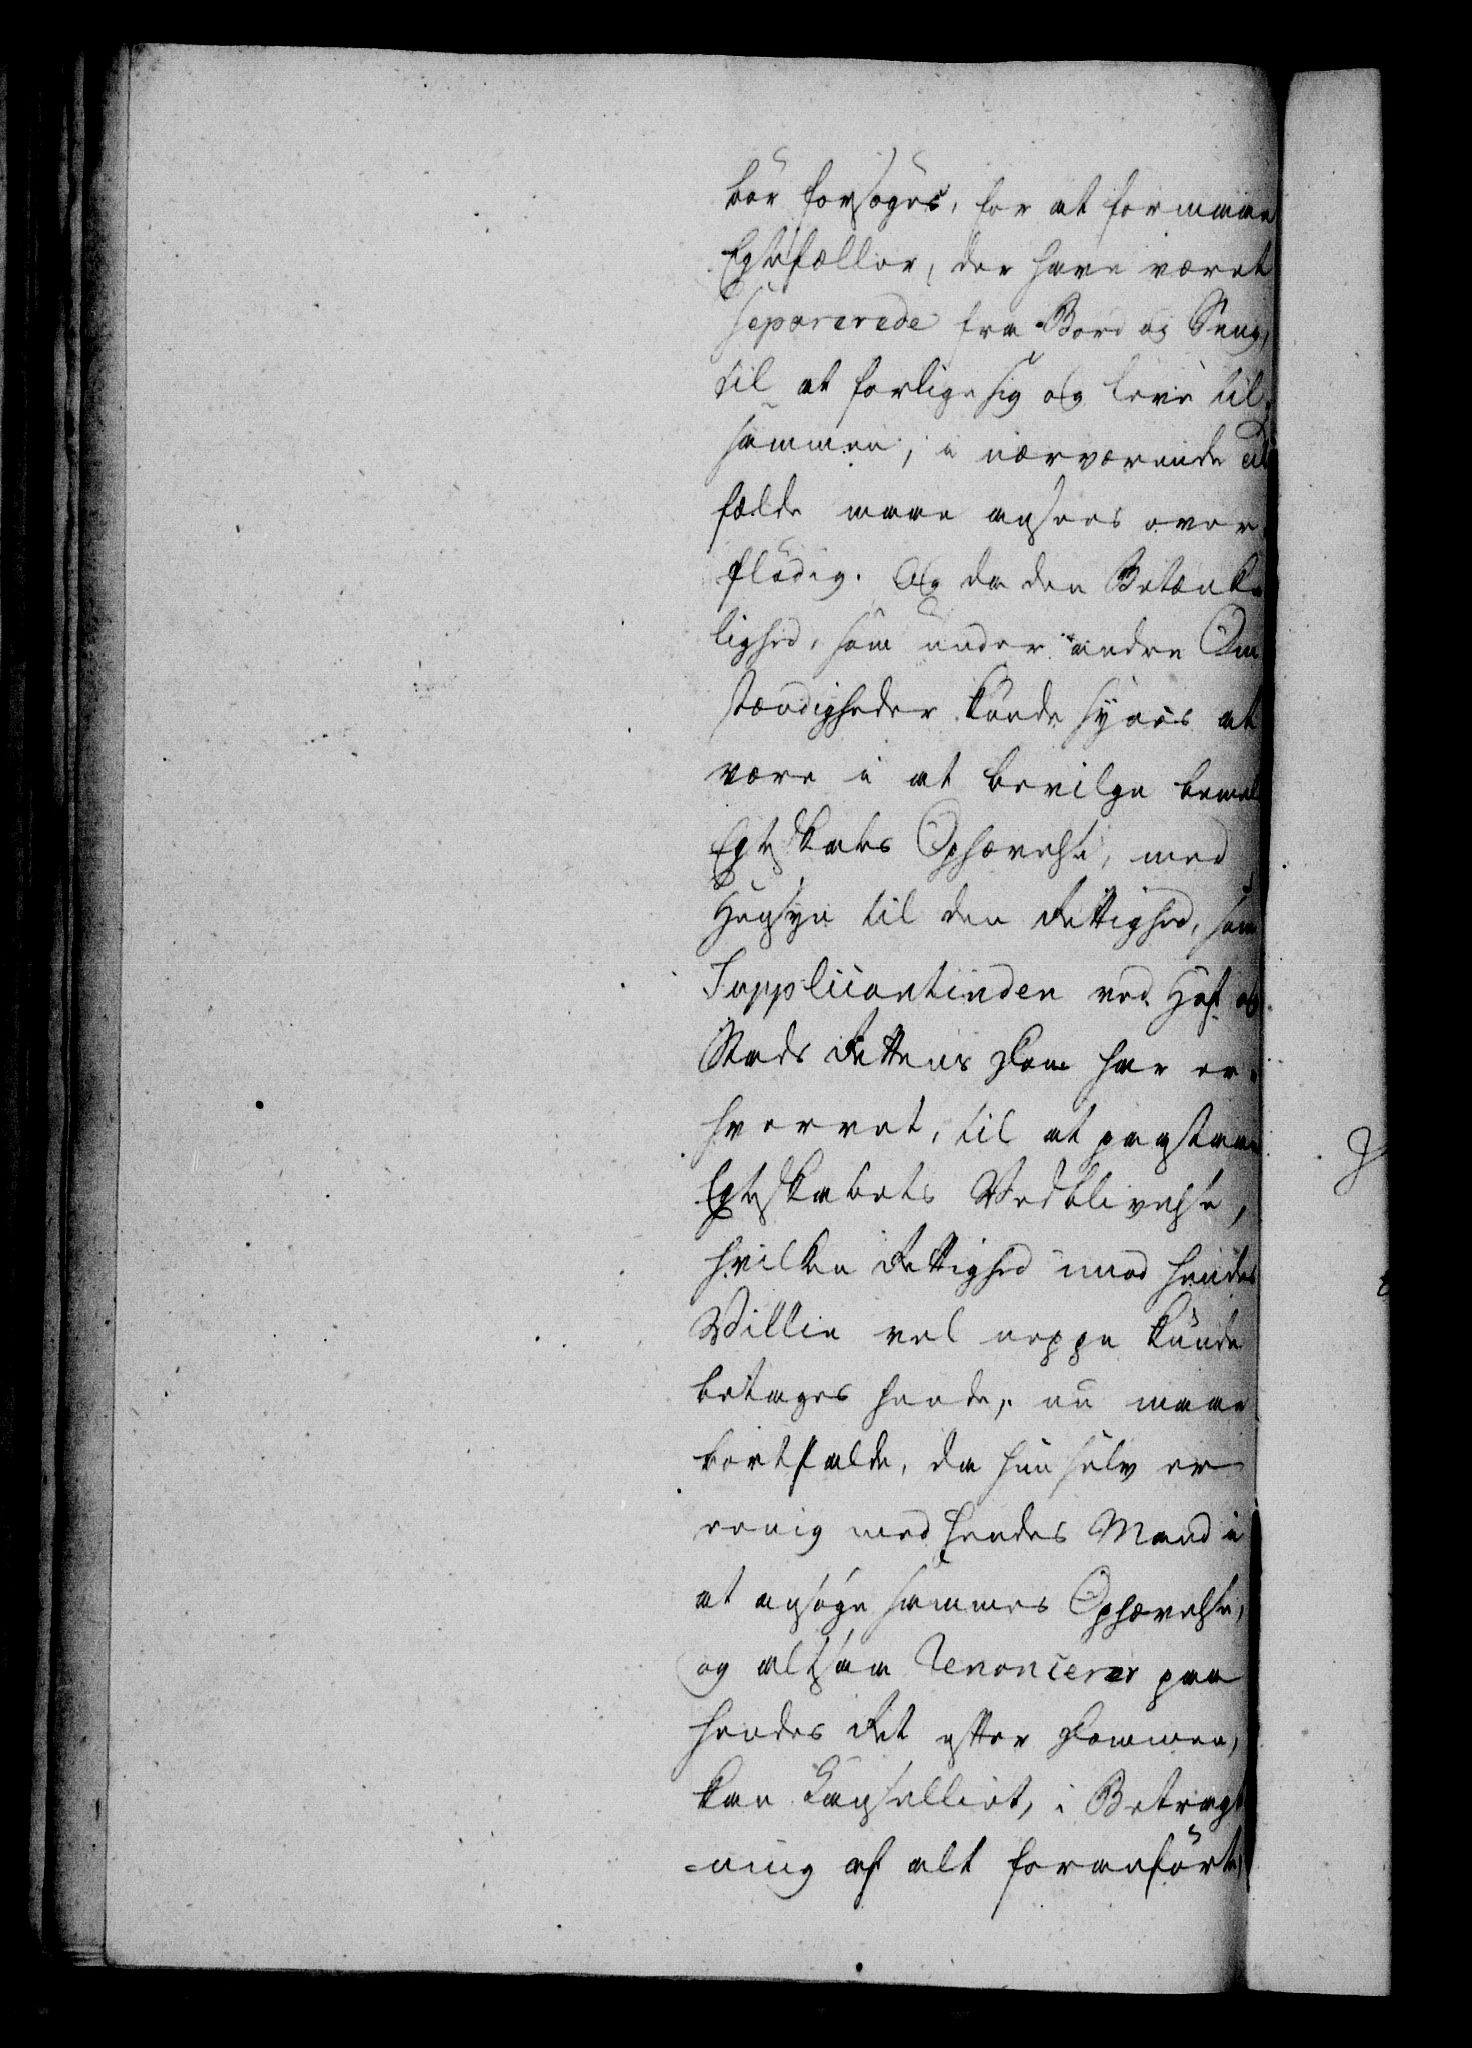 bör forsøges, for at formaae
Egtefæller, der have været
separerede fra Bord og Seng,
til at forlige sig og leve til-
sammen, i nærværende Til
fælde maae ansees over-
flødig. Og da den Betænke
lighed, som under andre Om
stændigheder kunde synes at
være i at bevilge bemel
Egteskabs Ophævelse, med
Hensyn til den Rettighed, som
Supplicantinden ved Hof og
Stads Rettens Dom har er-
hvervet, til at paastaae
Egteskabets Vedblivelse,
hvilken Rettighed imod hendes
Willie vel neppe kunde
betages hende, nu maae
bortfalde, da hun selv er
eenig med hendes Mand i
at ansøge sammes Ophævelse,
og altsaa renoncerer paa
hendes Ret efter Dommen,
kan Canselliet, i Betragt
-ning af alt foranførte,